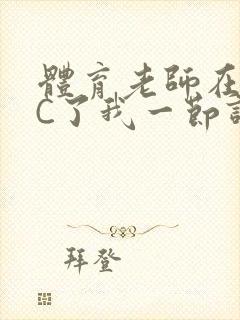 體育老師在
C了我一節
拜登